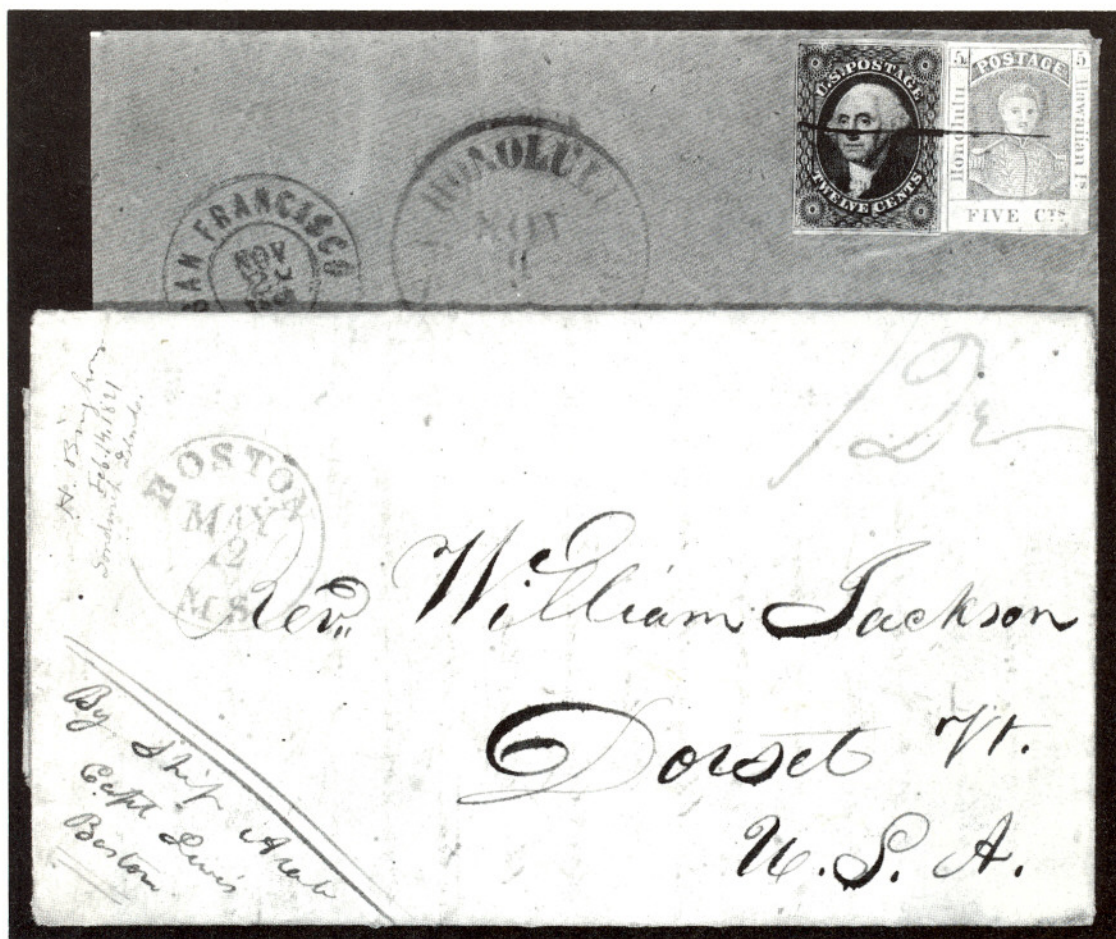 U.S.POSTAGE
TWELVE CENTS
5 POSTAGE 5
Honolulu
Hawaiian Is.
FIVE CTS
HONOLULU
NOV
SAN FRANCISCO
NOV
H. Bingham
Feb. 14. 1821
Sandwich Islands.
BOSTON
MAY
12
MS
Rev. William Jackson
Dorset Vt.
U. S. A.
By Ship Arab
Capt Lewis
Boston